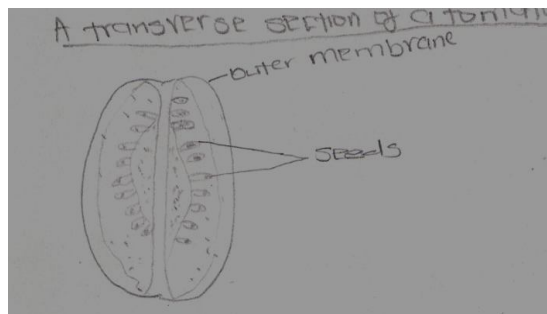 A transverse section of a tomato
outer membrane
seeds